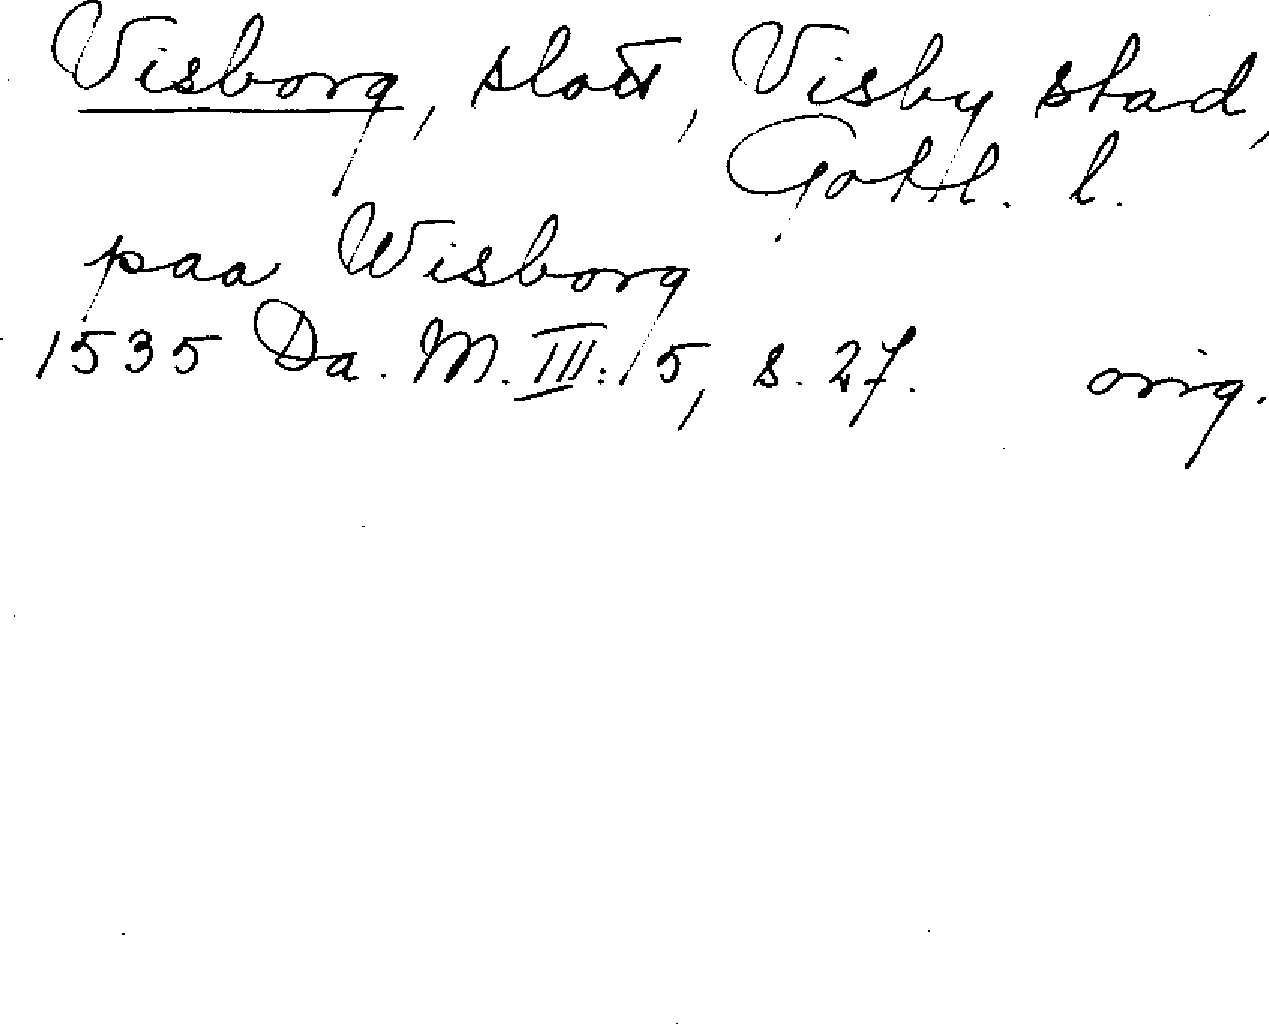 Visborg, slott, Visby stad,
Gotl. l.
paa Wisborg
1535 Da. M. III: 5, s. 27. orig.